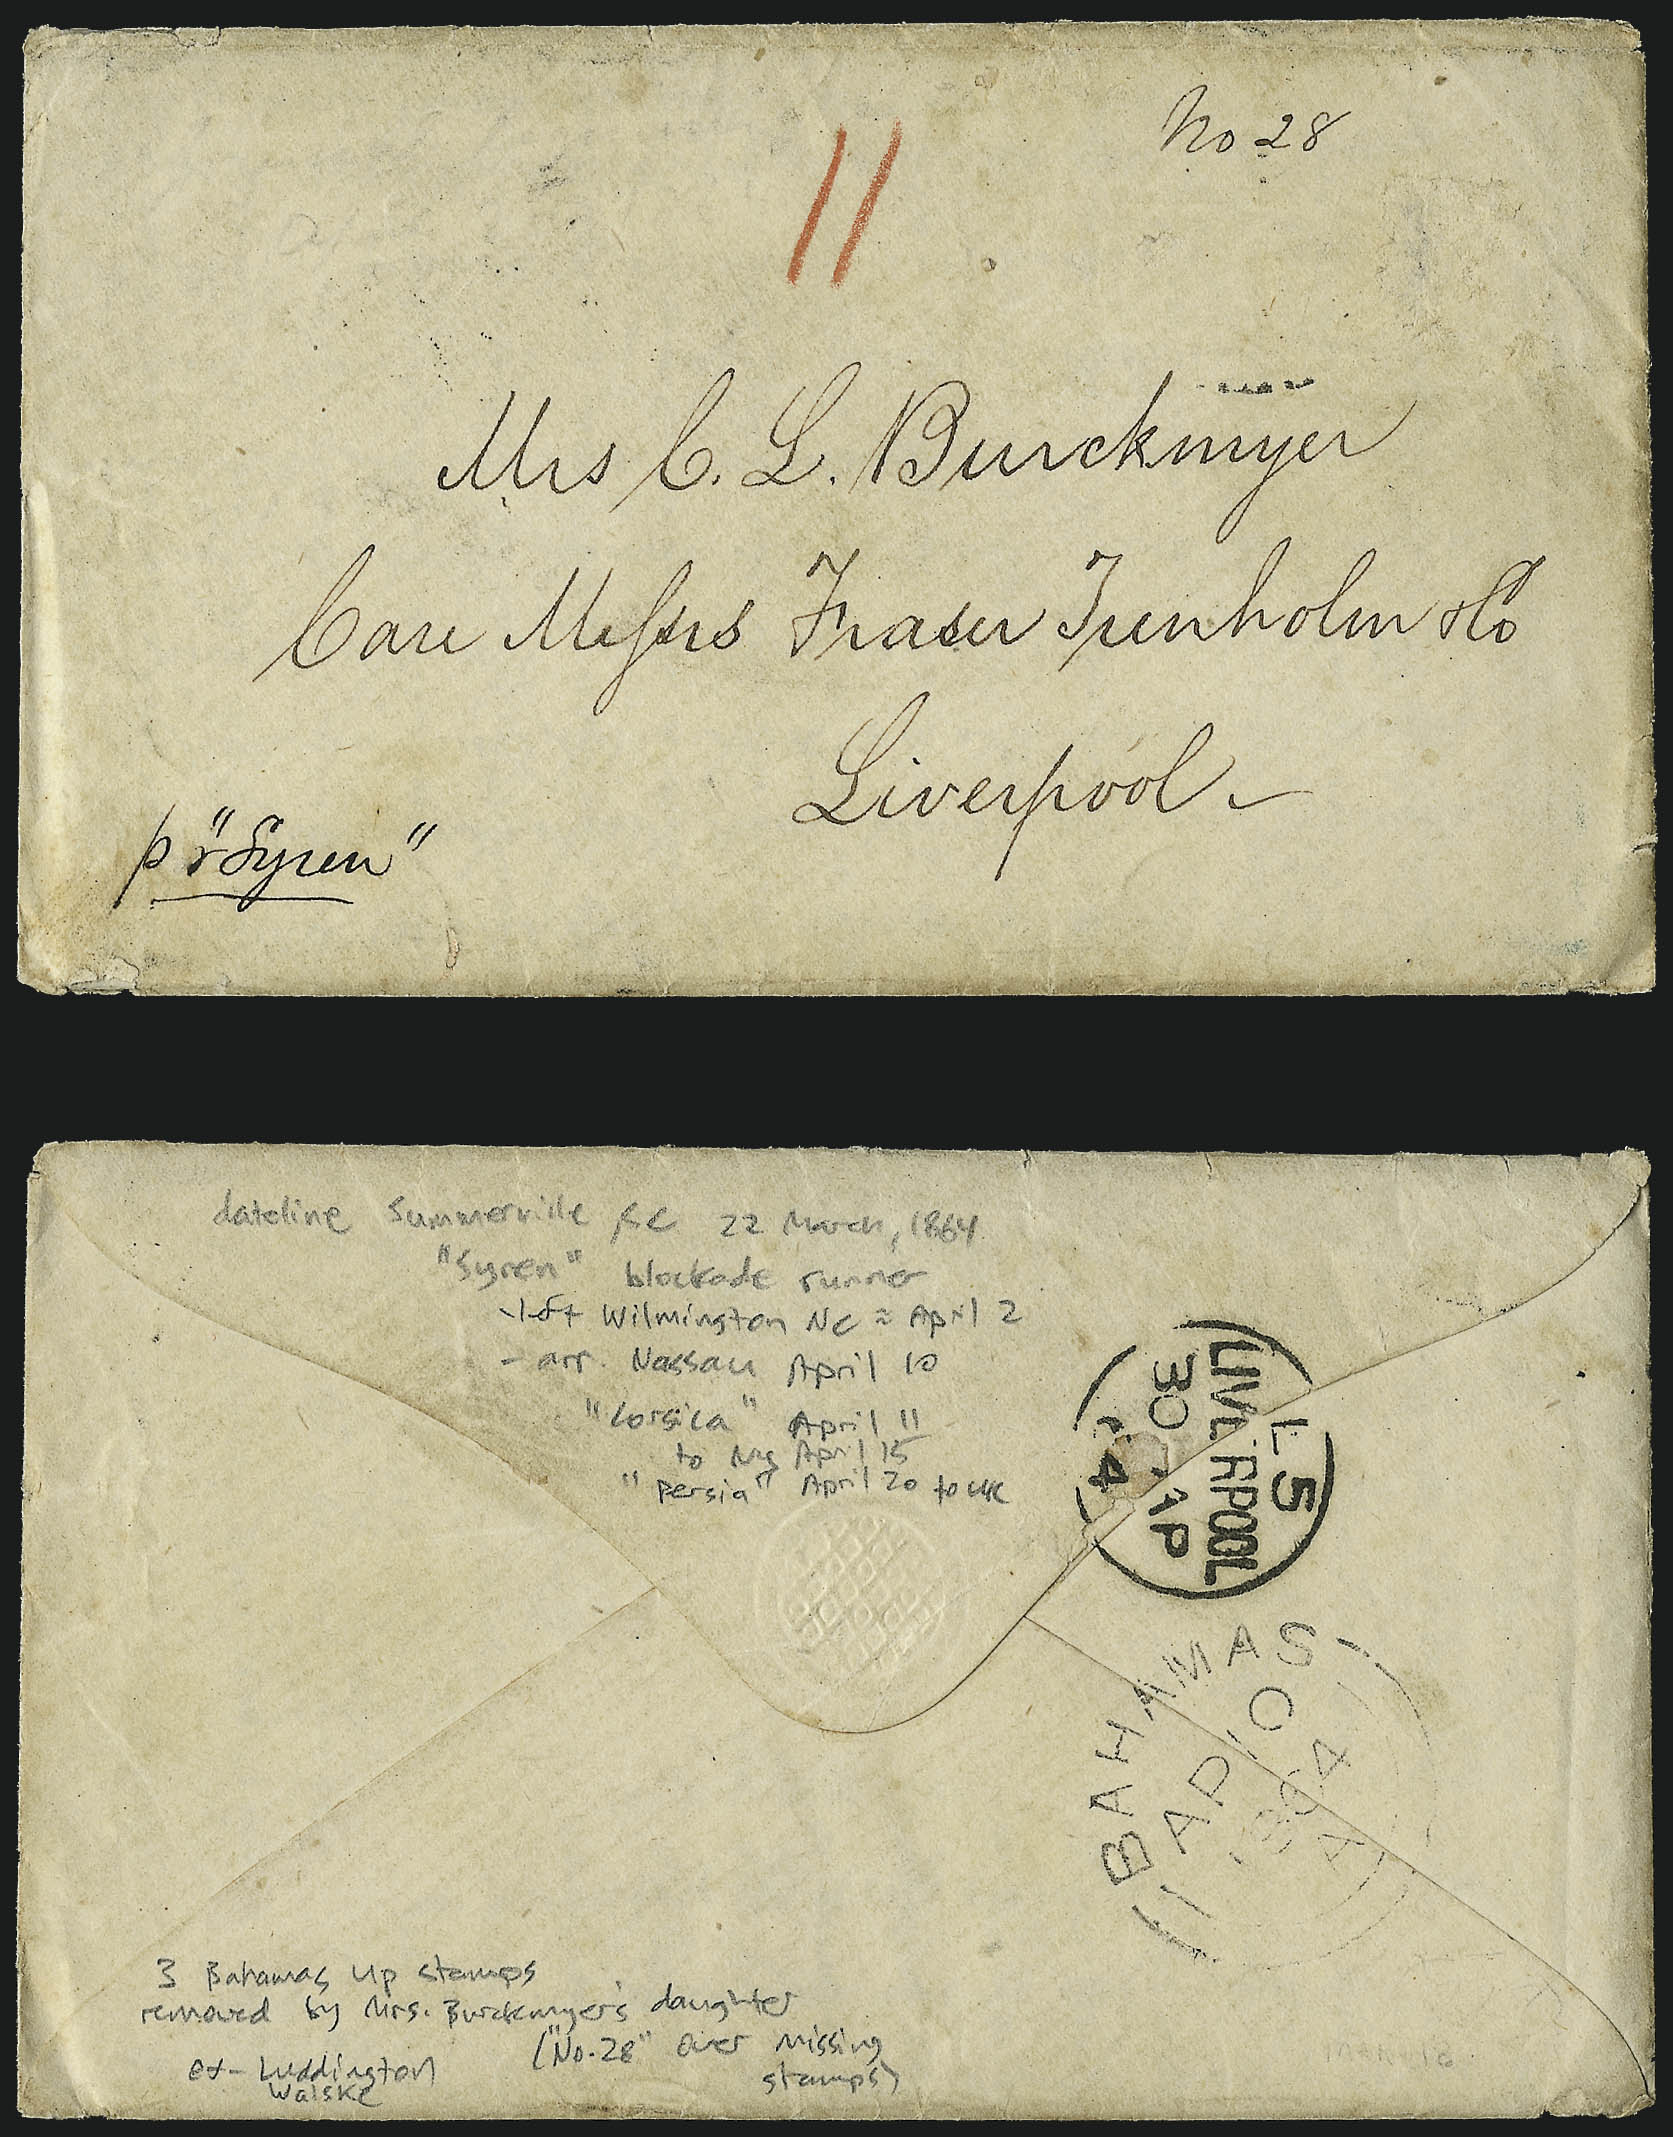 No 28
11
Mrs C. L. Burckmyer
Care Messrs Fraser Trenholm & Co
Liverpool
pr "Syren"
dateline Summerville SC 22 March, 1864
"Syren" blockade runner
- left Wilmington NC ≈ April 2
- arr. Nassau April 10
"Corsica" April 11
to NYC April 15
"Persia" April 20 to UK
L 5
LIVERPOOL
30 AP
64
BAHAMAS
AP 10
1864
A
3 Bahamas 4p stamps
removed by Mrs. Burckmyer's daughter
("No. 28" over missing
stamps)
ex- Luddington
Walske